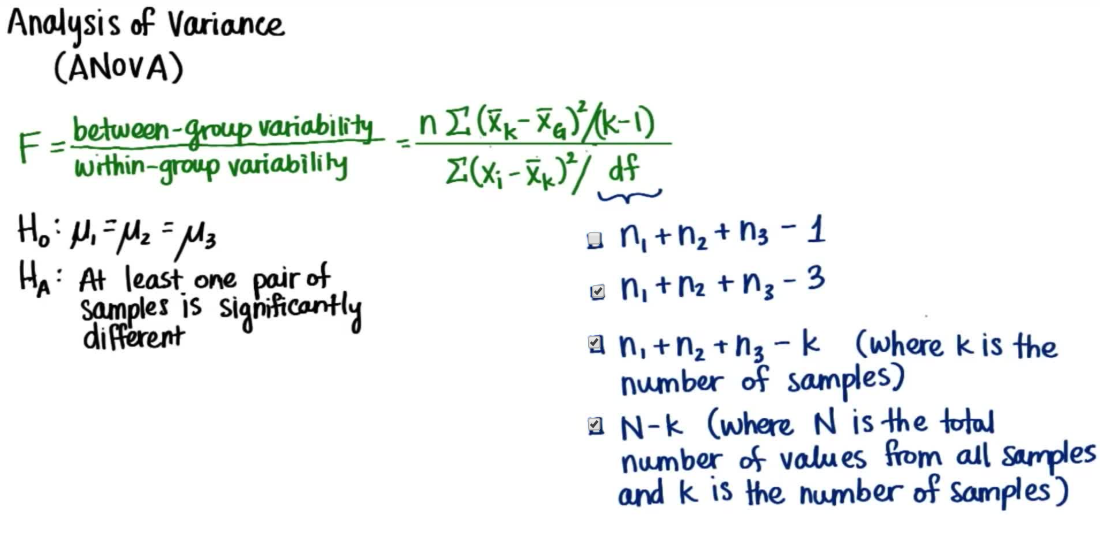 Analysis of Variance
(ANOVA)
F = between-group variability / within-group variability = n Σ(x̄ₖ - x̄_G)²/(k-1) / Σ(xᵢ - x̄ₖ)²/ df
H₀: μ₁ = μ₂ = μ₃
H_A: At least one pair of
samples is significantly
different
n₁ + n₂ + n₃ - 1
n₁ + n₂ + n₃ - 3
n₁ + n₂ + n₃ - k (where k is the
number of samples)
N-k (where N is the total
number of values from all samples
and k is the number of samples)